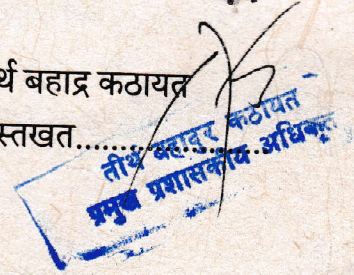 र्थ बहाद्र कठायत
स्तखत....................
तीर्थ बहादुर कठायत
प्रमुख प्रशासकीय अधिकृत